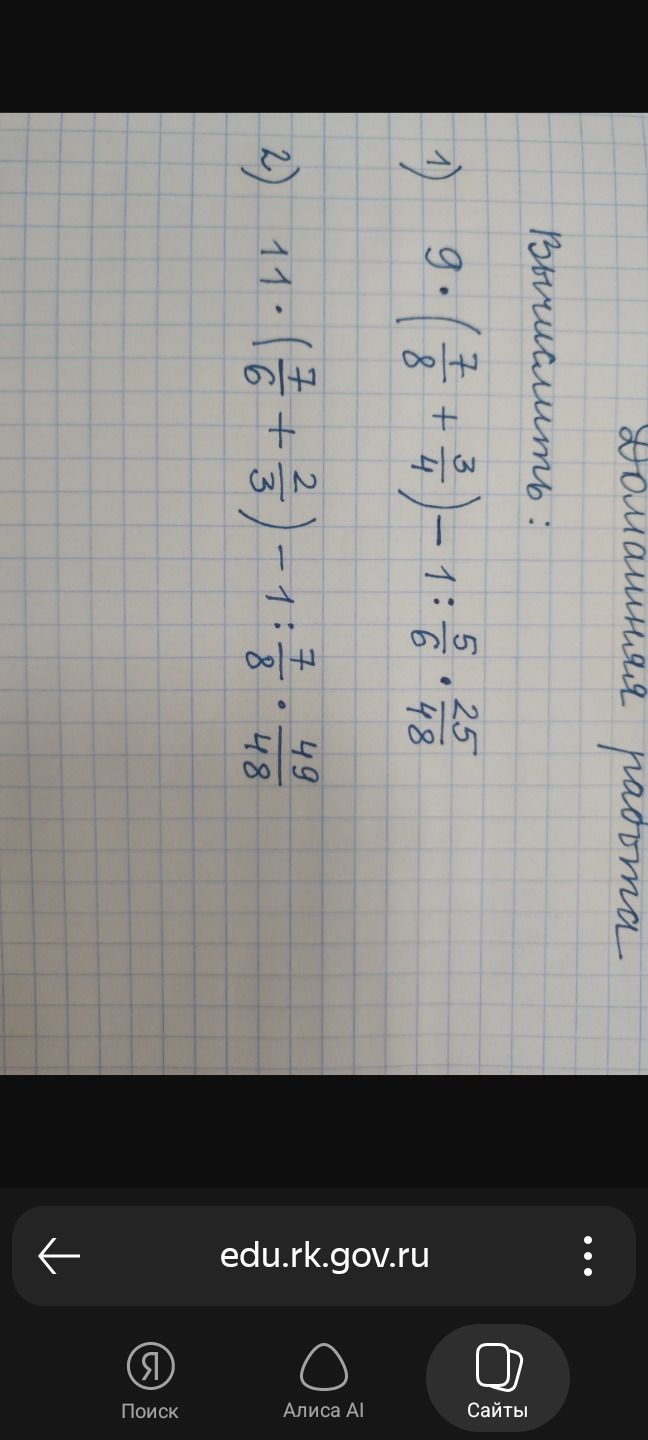 Домашняя работа
Вычислить:
1) 9 · (7/8 + 3/4) − 1 : 5/6 · 25/48
2) 11 · (7/6 + 2/3) − 1 : 7/8 · 49/48
edu.rk.gov.ru
Поиск
Алиса AI
Сайты